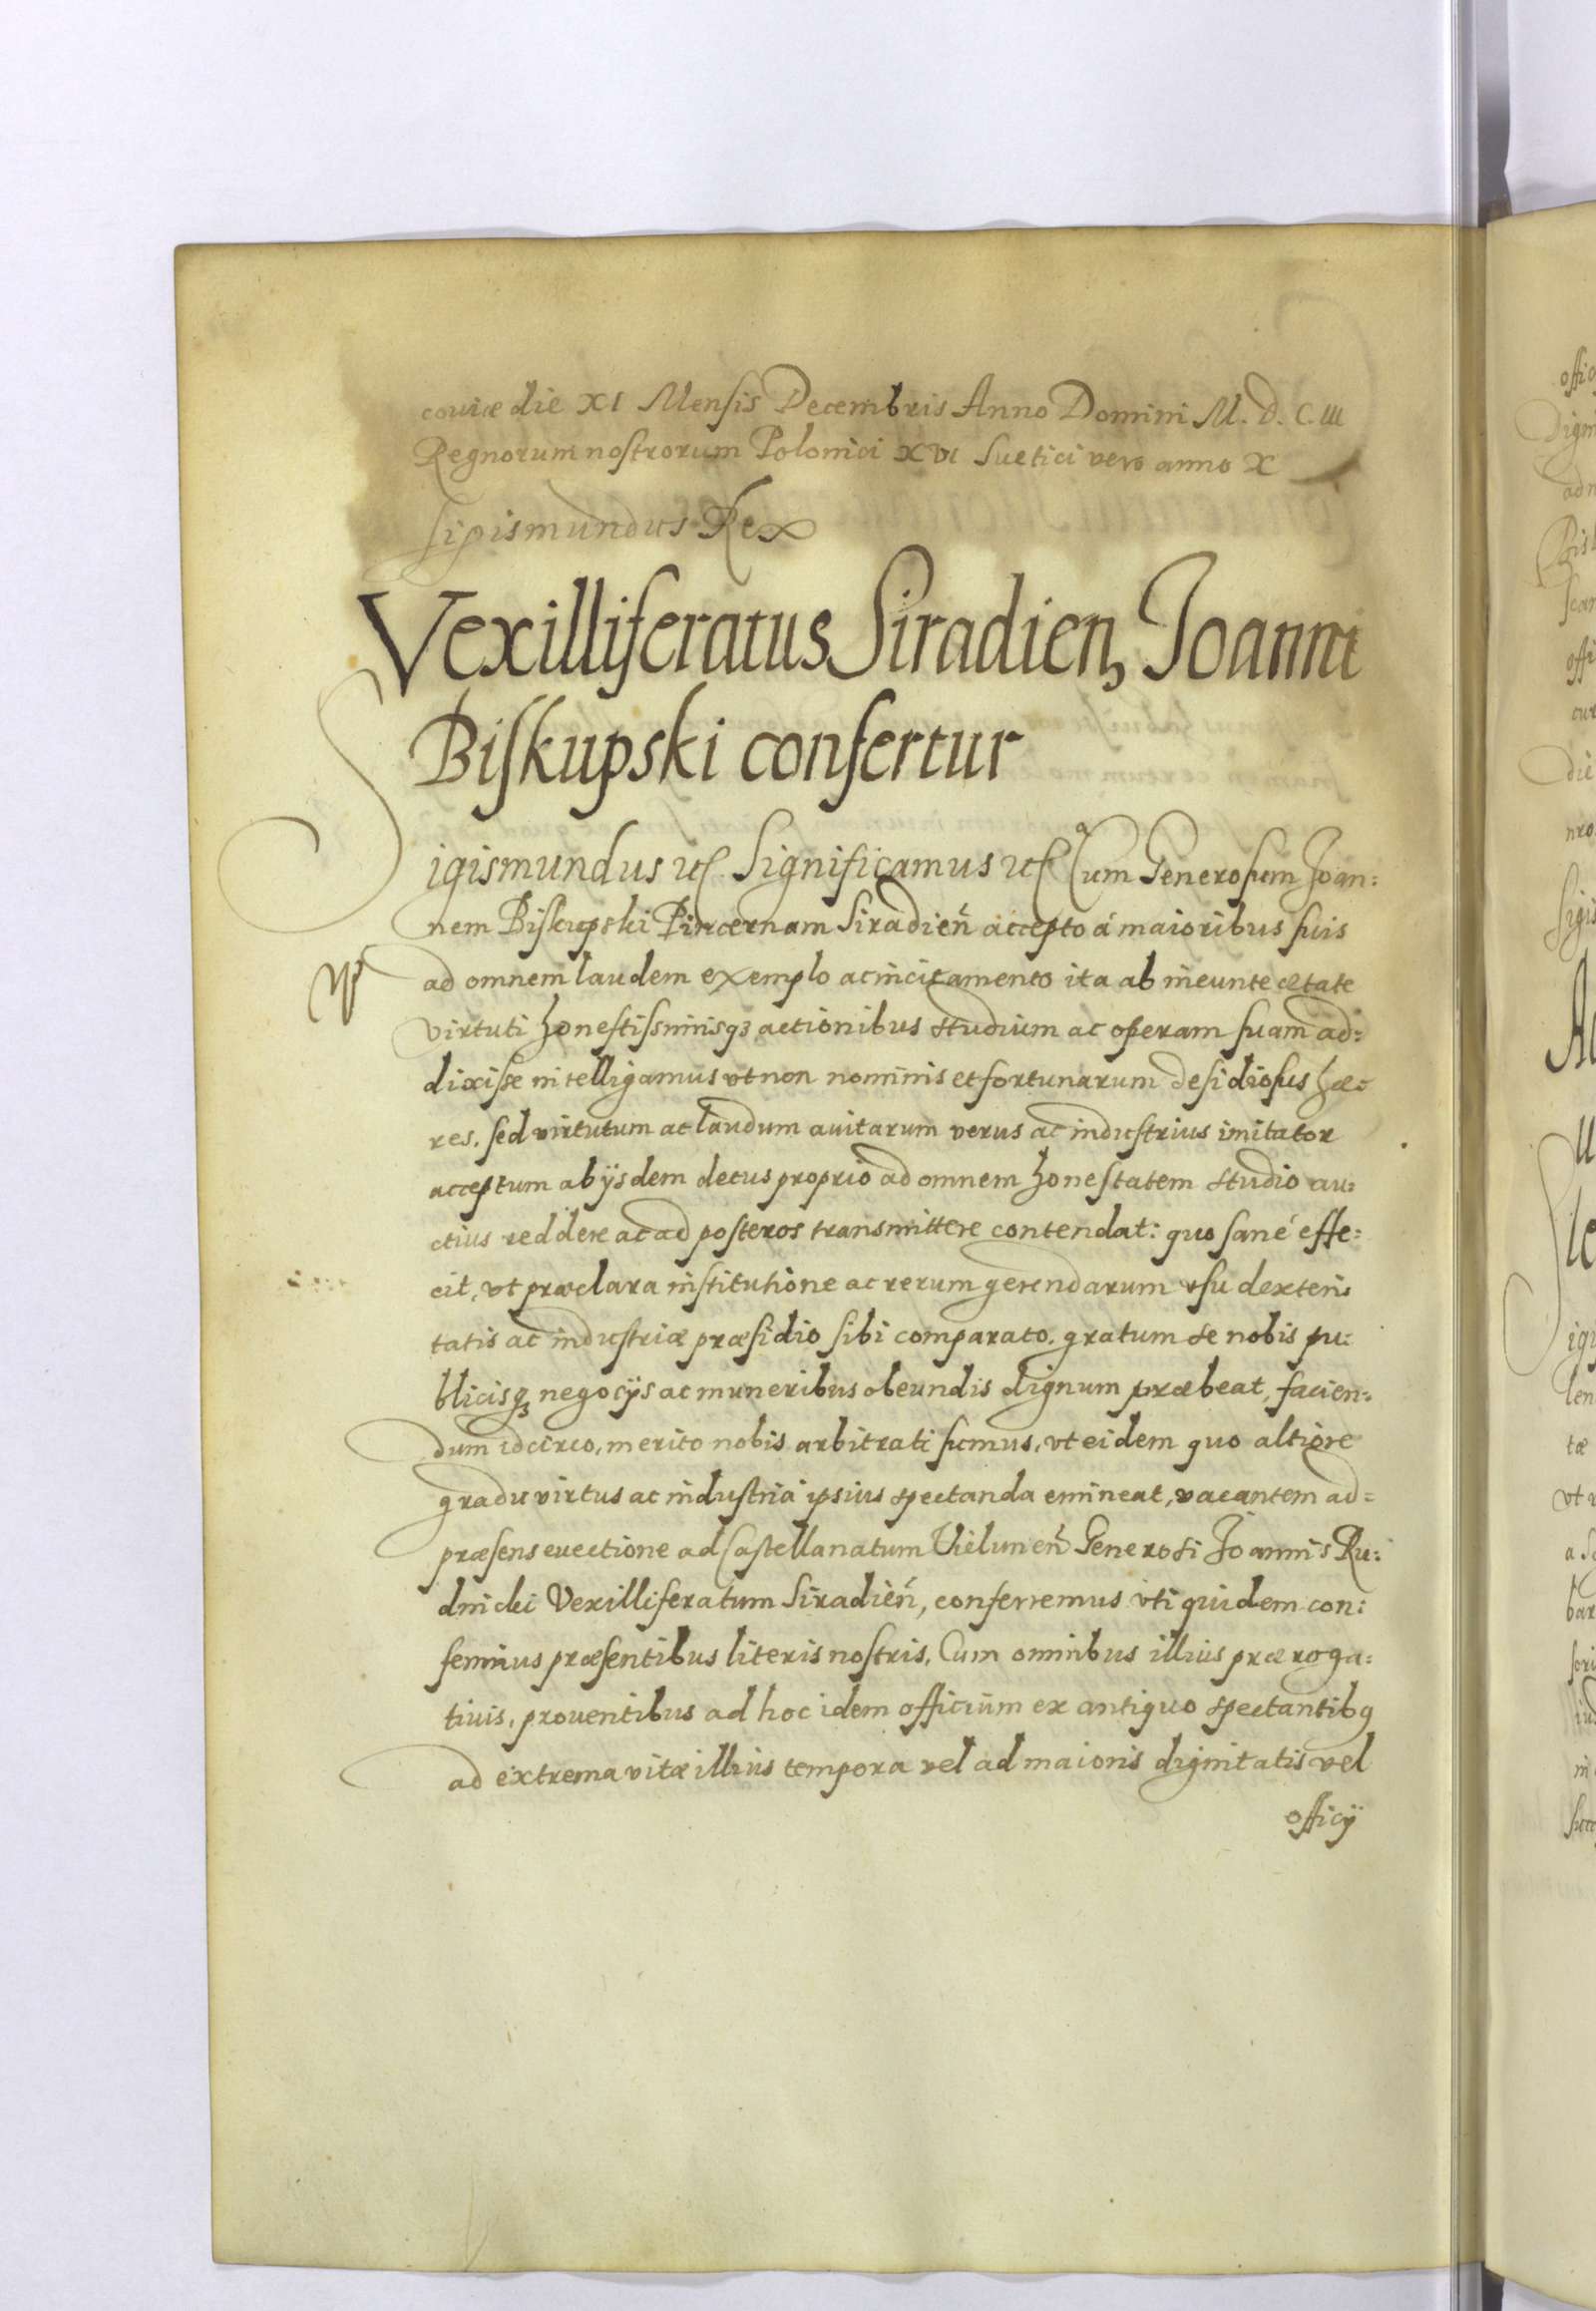 couiæ die XI Mensis Decembris Anno Domini M. D. C. III
Regnorum nostrorum Polonici XVI Suetici vero anno X
Sigismundus Rex
Vexilliferatus Siradien, Joanni
Biskupski confertur
Sigismundus etc. Significamus etc Cum Generosum Joan:
nem Biskupski Pincernam Siradień accepto á maioribus suis
ad omnem laudem exemplo ac incitamento ita ab ineunte ætate
virtuti honestissimisq3 actionibus studium ac operam suam ad:
dixisse intelligamus vt non nominis et fortunarum desidiosus hæ:
res, sed virtutum ac laudum auitarum verus ac industrius imitator
acceptum ab ijsdem decus proprio ad omnem honestatem studio au:
ctius reddere ac ad posteros transmittere contendat: quo sané effe:
cit, vt præclara institutione ac rerum gerendarum vsu dexteri:
tatis ac industriæ præsidio sibi comparato, gratum se nobis pu:
blicisq3 negocijs ac muneribus obeundis dignum præbeat, facien:
dum idcirco, merito nobis arbitrati sumus, vt eidem quo altiore
gradu virtus ac industria ipsius spectanda emineat, vacantem ad:
præsens euectione ad Castellanatum Vielunen̄ Generosi Joannis Ru:
dnicki Vexilliferatum Siradień, conferremus vti quidem con:
ferimus præsentibus literis nostris, Cum omnibus illius præroga:
tiuis, prouentibus ad hoc idem officium ex antiquo spectantibq
ad extrema vitæ illius tempora vel ad maioris dignitatis vel
officij